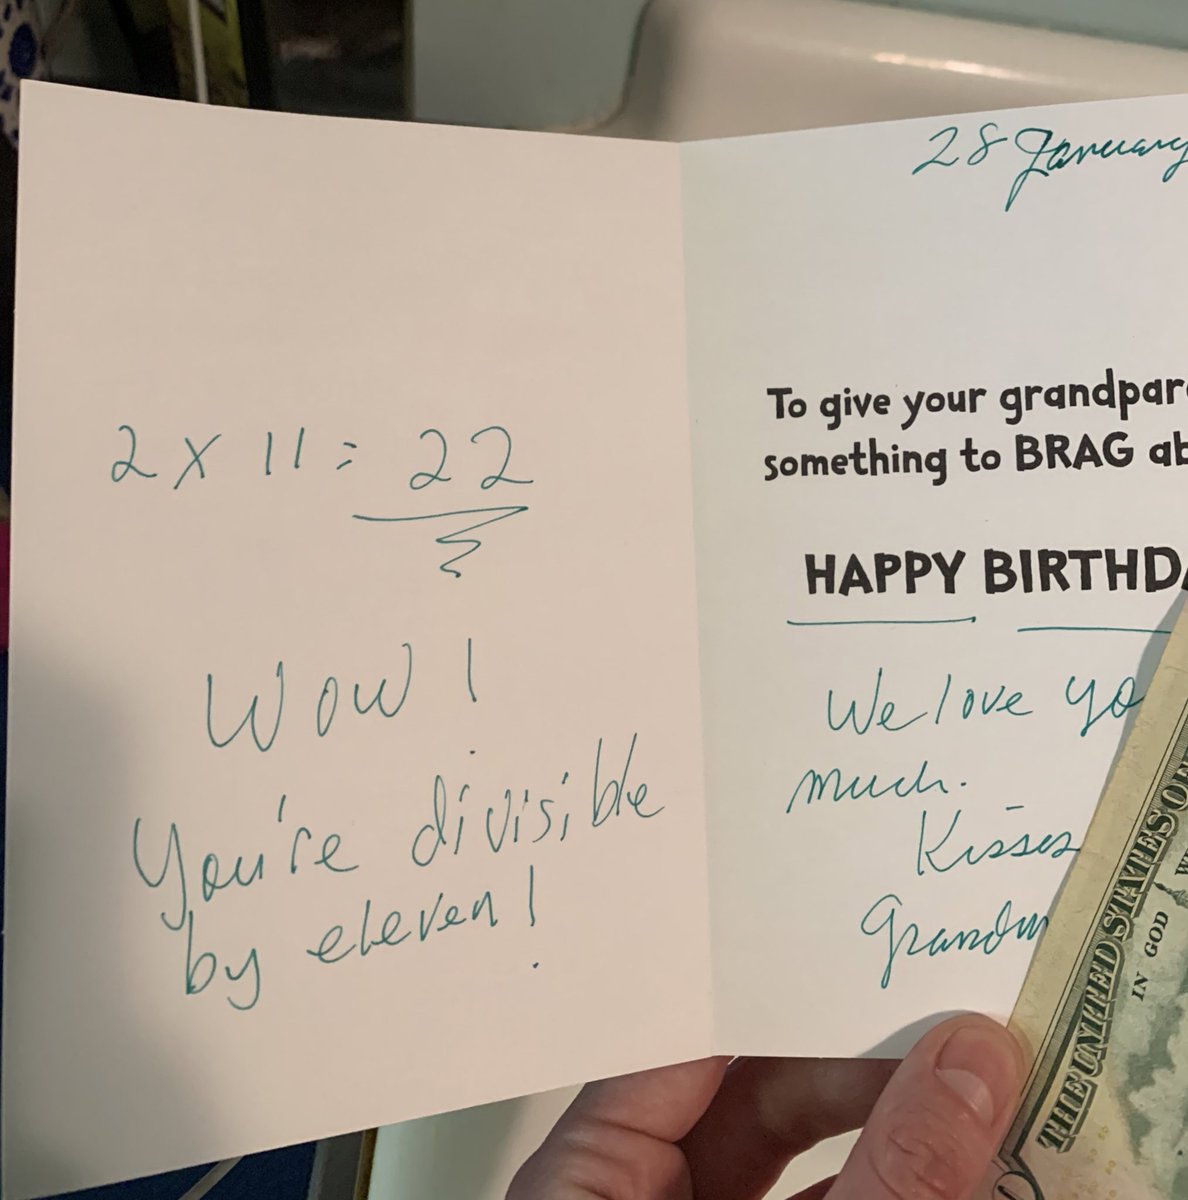 2 x 11 = 22
Wow!
You're divisible
by eleven!
28 January
To give your grandpar
something to BRAG ab
HAPPY BIRTHDA
We love yo
much.
Kisses
Grandm
THE UNITED STATES OF
IN GOD WE